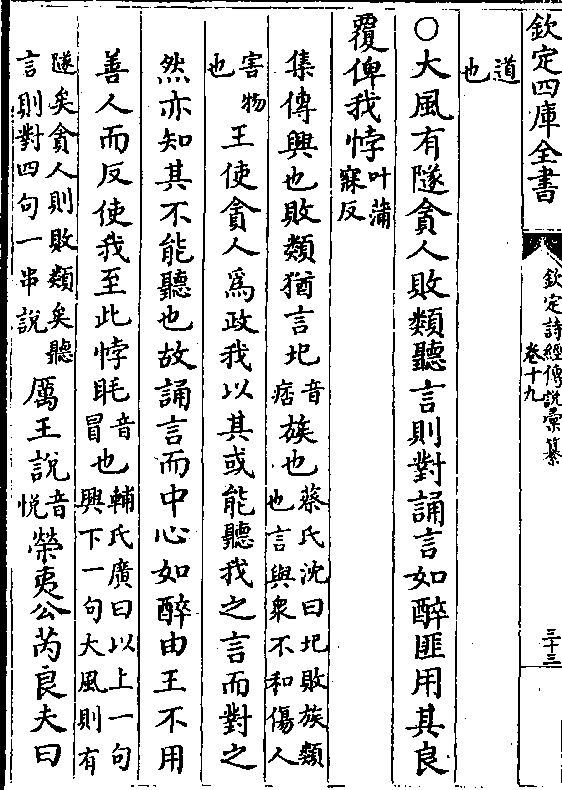 欽定四庫全書
欽定詩經傳說彙纂
卷十九
三十三
道
也
○大風有隧貪人敗類聽言則對誦言如醉匪用其良
覆俾我悖叶蒲
寐反
集傳興也敗類猶言圮音
痞族也蔡氏沈曰圮敗族類
也言與衆不和傷人
害物
也王使貪人為政我以其或能聽我之言而對之
然亦知其不能聽也故誦言而中心如醉由王不用
善人而反使我至此悖眊音
冒也輔氏廣曰以上一句
興下一句大風則有
隧矣貪人則敗類矣聽
言則對四句一串說厲王說音
悅榮夷公芮良夫曰